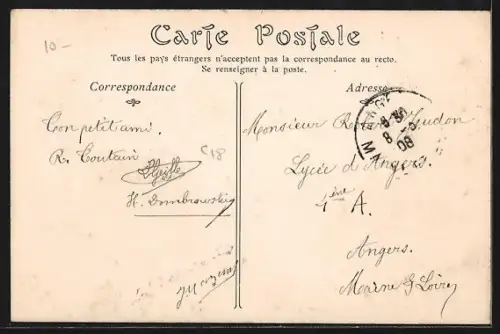 10-
Carte Postale
Tous les pays étrangers n'acceptent pas la correspondance au recto.
Se renseigner à la poste.
Correspondance
Adresse
Ton petit ami.
R. Toutain
C18
H. Dombrowsky
Monsieur Oudon
Lycée d'Angers.
4ème A.
Angers.
Maine & Loire
8 30
8 -5
08